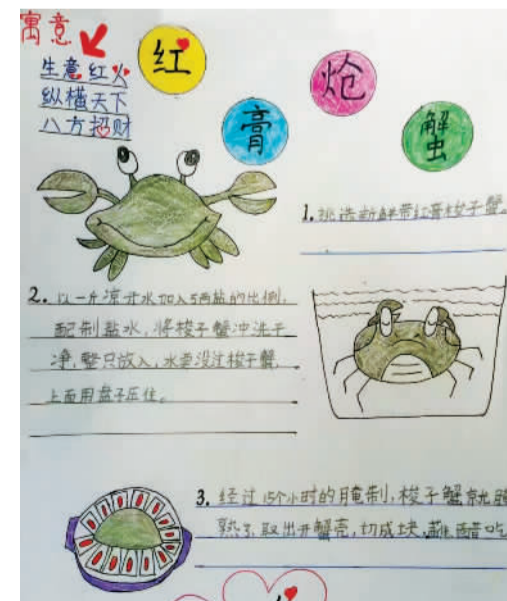 寓意
生意红火
纵横天下
八方招财
红
膏
炝
蟹
1. 挑选新鲜带红膏梭子蟹。
2. 以一斤凉开水加入5两盐的比例,
配制盐水,将梭子蟹冲洗干
净,整只放入,水要没过梭子蟹
上面用盘子压住。
3. 经过15个小时的腌制,梭子蟹就腌
熟了,取出开蟹壳,切成块,蘸醋吃